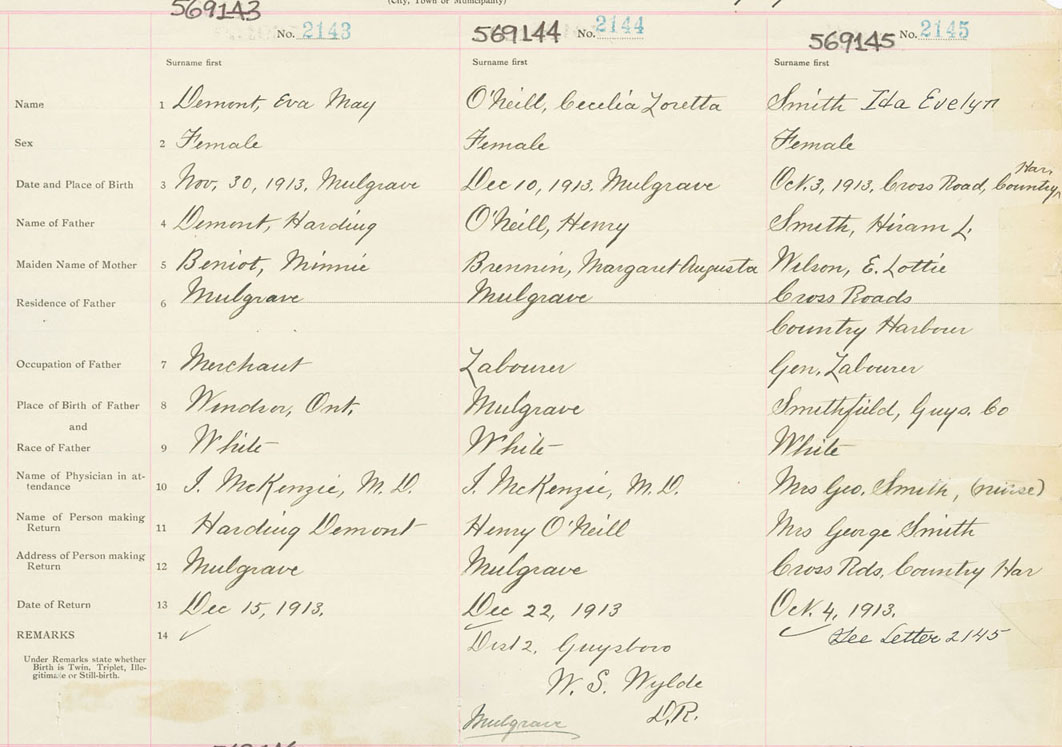 (City, Town or Municipality)
569143 No. 2143
569144 No. 2144
569145 No. 2145
Surname first Surname first Surname first
Name 1 Demont, Eva May O'Neill, Cecelia Loretta Smith Ida Evelyn
Sex 2 Female Female Female
Date and Place of Birth 3 Nov. 30, 1913, Mulgrave Dec 10, 1913. Mulgrave Oct. 3, 1913, Cross Road, Country Har.
Name of Father 4 Demont, Harding O'Neill, Henry Smith, Hiram L.
Maiden Name of Mother 5 Beniot, Minnie Brennin, Margaret Augusta Wilson, E. Lottie
Residence of Father 6 Mulgrave Mulgrave Cross Roads
Country Harbour
Occupation of Father 7 Merchant Labourer Gen. Labourer
Place of Birth of Father 8 Windsor, Ont. Mulgrave Smithfield, Guys. Co
and
Race of Father 9 White White White
Name of Physician in at-
tendance 10 I. McKenzie, M.D. I. McKenzie, M.D. Mrs Geo. Smith, (nurse)
Name of Person making
Return 11 Harding Demont Henry O'Neill Mrs George Smith
Address of Person making
Return 12 Mulgrave Mulgrave Cross Rds, Country Har
Date of Return 13 Dec 15, 1913. Dec 22, 1913 Oct. 4, 1913.
REMARKS 14 ✓ Dist 2, Guysboro See Letter 2145
Under Remarks state whether
Birth is Twin, Triplet, Ille-
gitimate or Still-birth.
W. S. Wylde
D.R.
Mulgrave